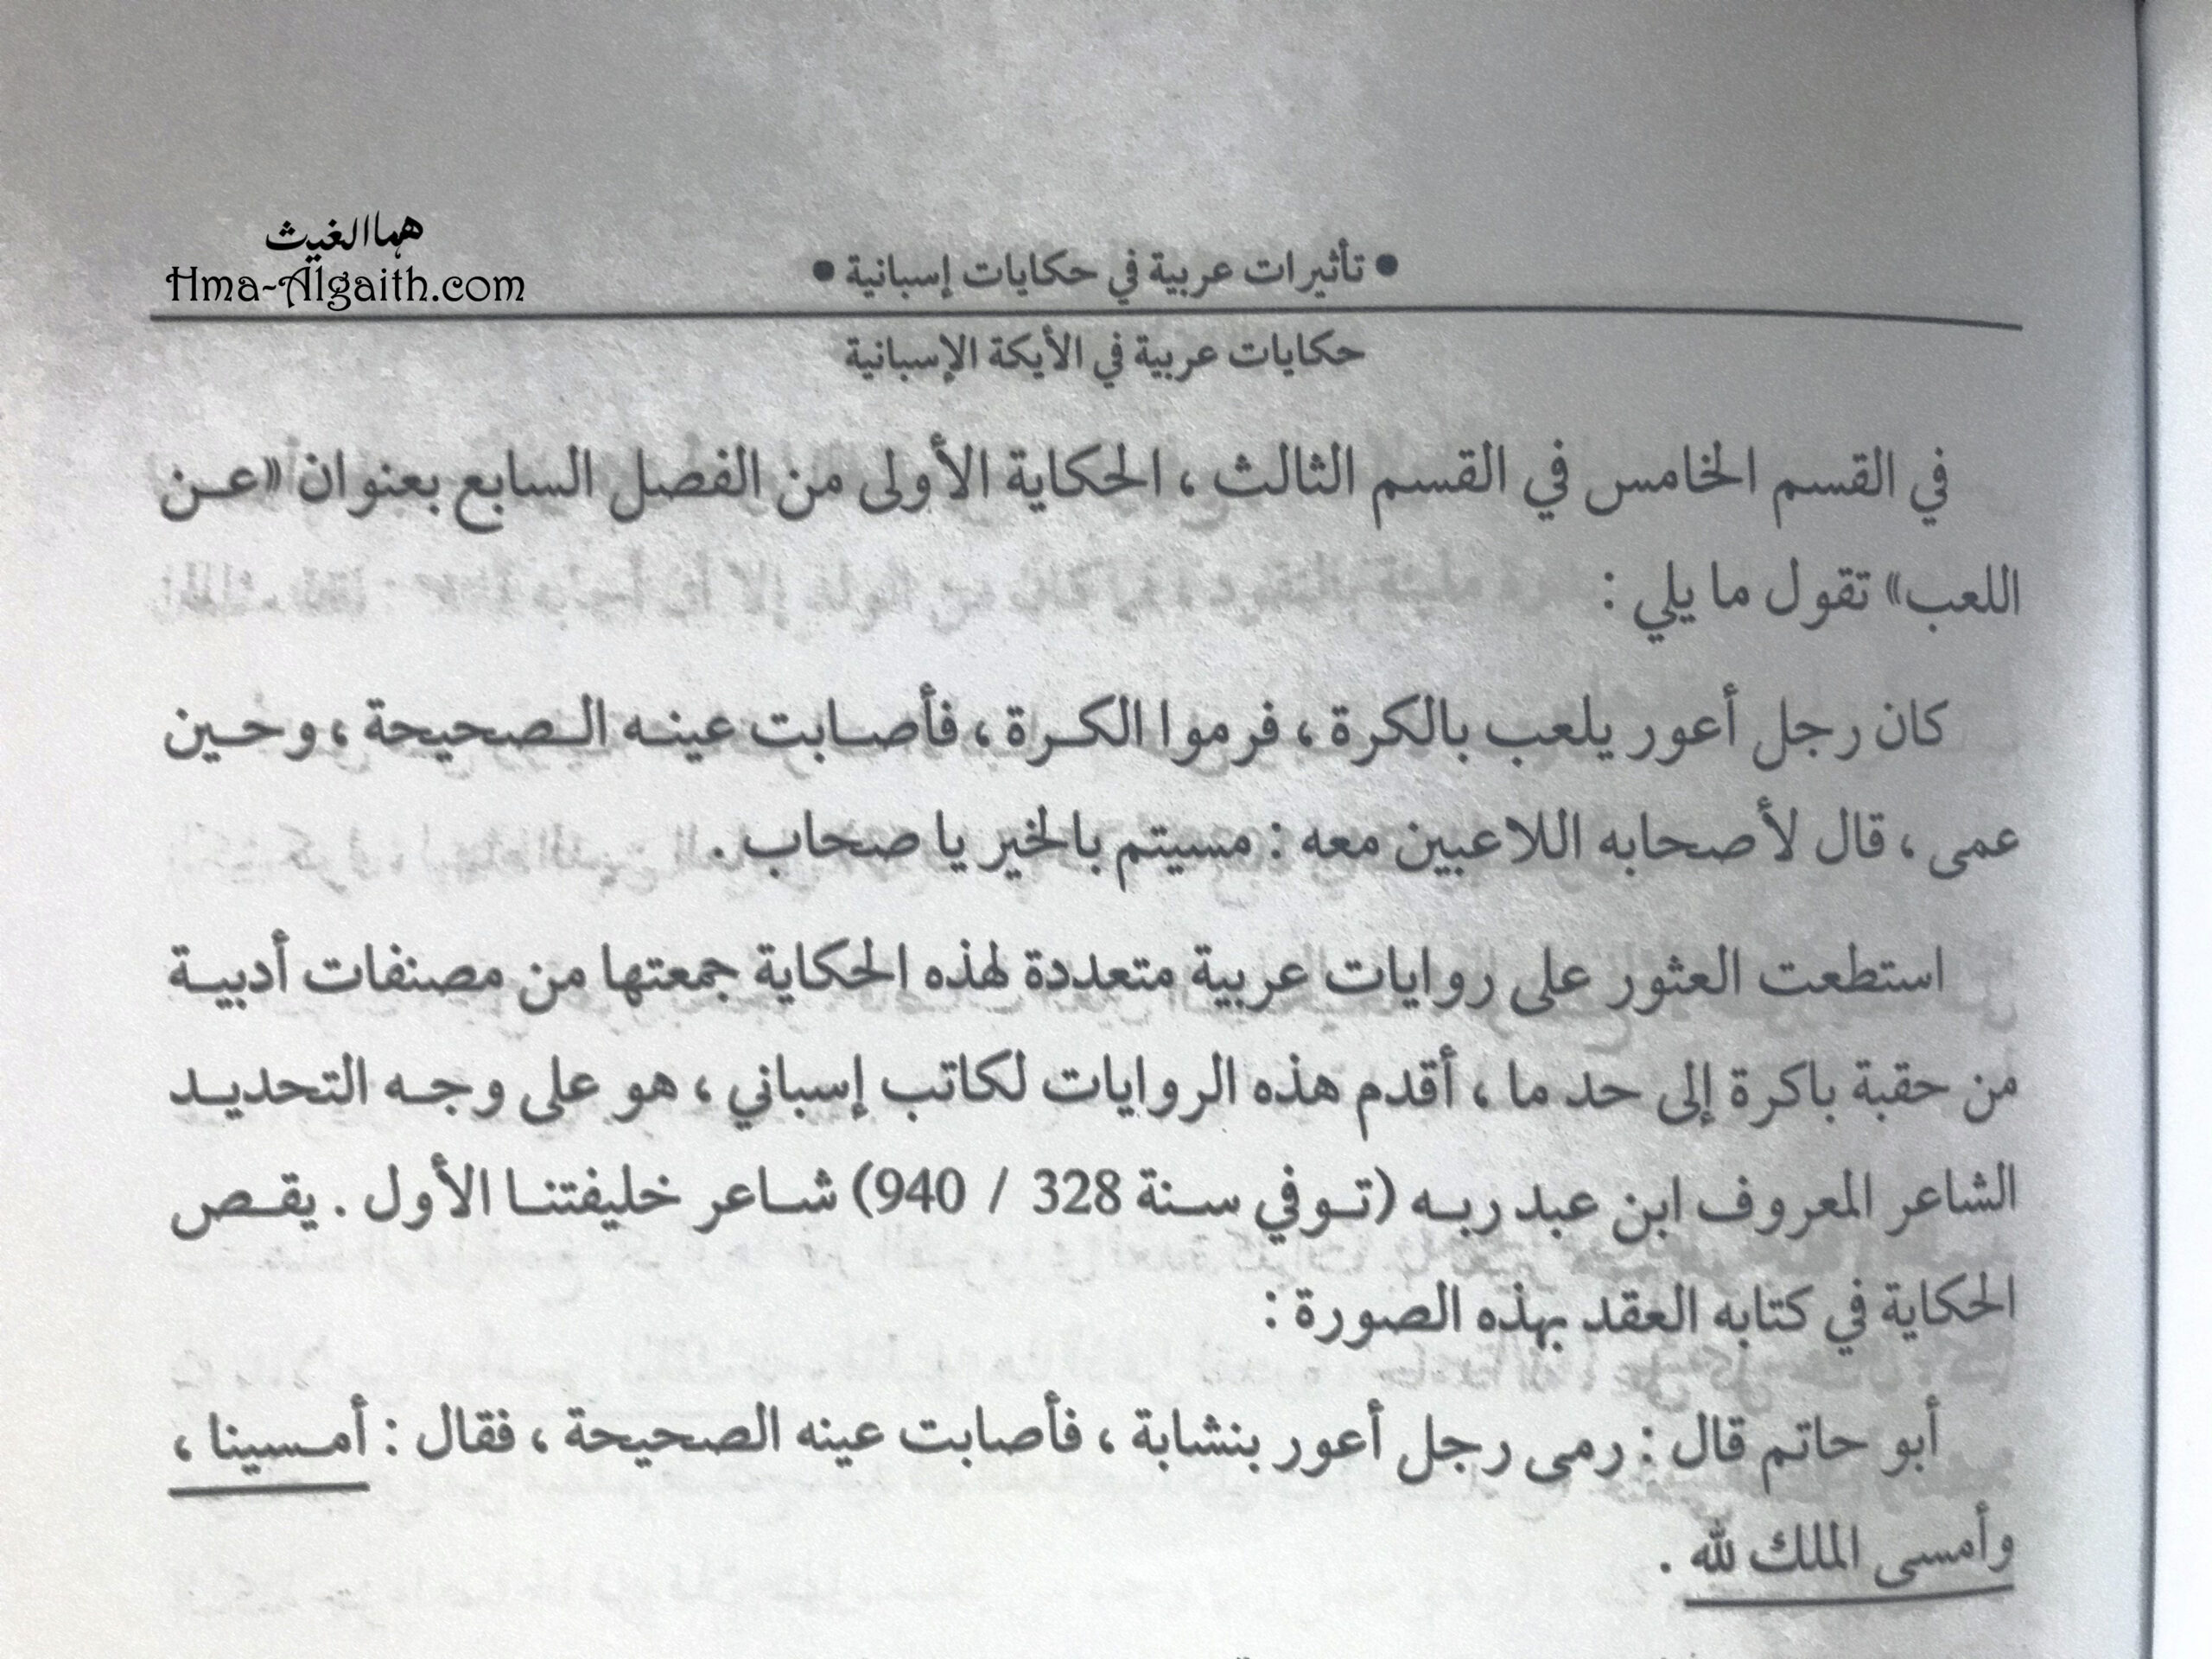 هما الغيث
Hma-Algaith.com
• تأثيرات عربية في حكايات إسبانية •
حكايات عربية في الأيكة الإسبانية
في القسم الخامس في القسم الثالث ، الحكاية الأولى من الفصل السابع بعنوان «عن
اللعب» تقول ما يلي :
كان رجل أعور يلعب بالكرة ، فرموا الكرة ، فأصابت عينه الصحيحة ، وحين
عمى ، قال لأصحابه اللاعبين معه : مسيتم بالخير يا صحاب .
استطعت العثور على روايات عربية متعددة لهذه الحكاية جمعتها من مصنفات أدبية
من حقبة باكرة إلى حد ما ، أقدم هذه الروايات لكاتب إسباني ، هو على وجه التحديد
الشاعر المعروف ابن عبد ربه (توفي سنة 328 / 940) شاعر خليفتنا الأول . يقص
الحكاية في كتابه العقد بهذه الصورة :
أبو حاتم قال : رمى رجل أعور بنشابة ، فأصابت عينه الصحيحة ، فقال : أمسينا ،
وأمسى الملك لله .